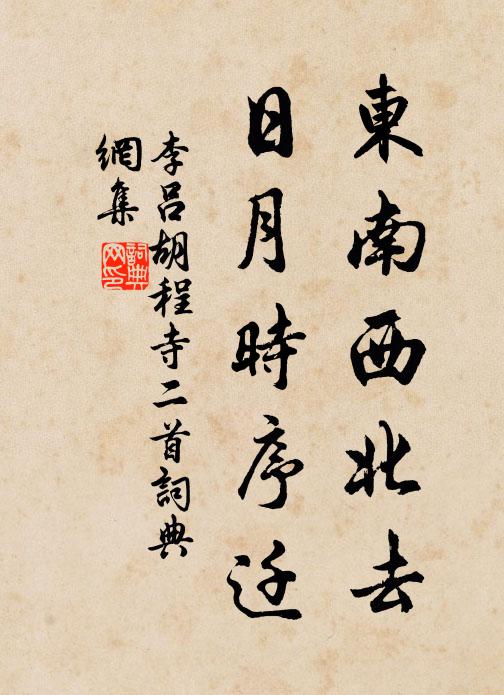 東南西北去
日月時序迁
李呂胡程寺二首詞典
網集
詞典
网印